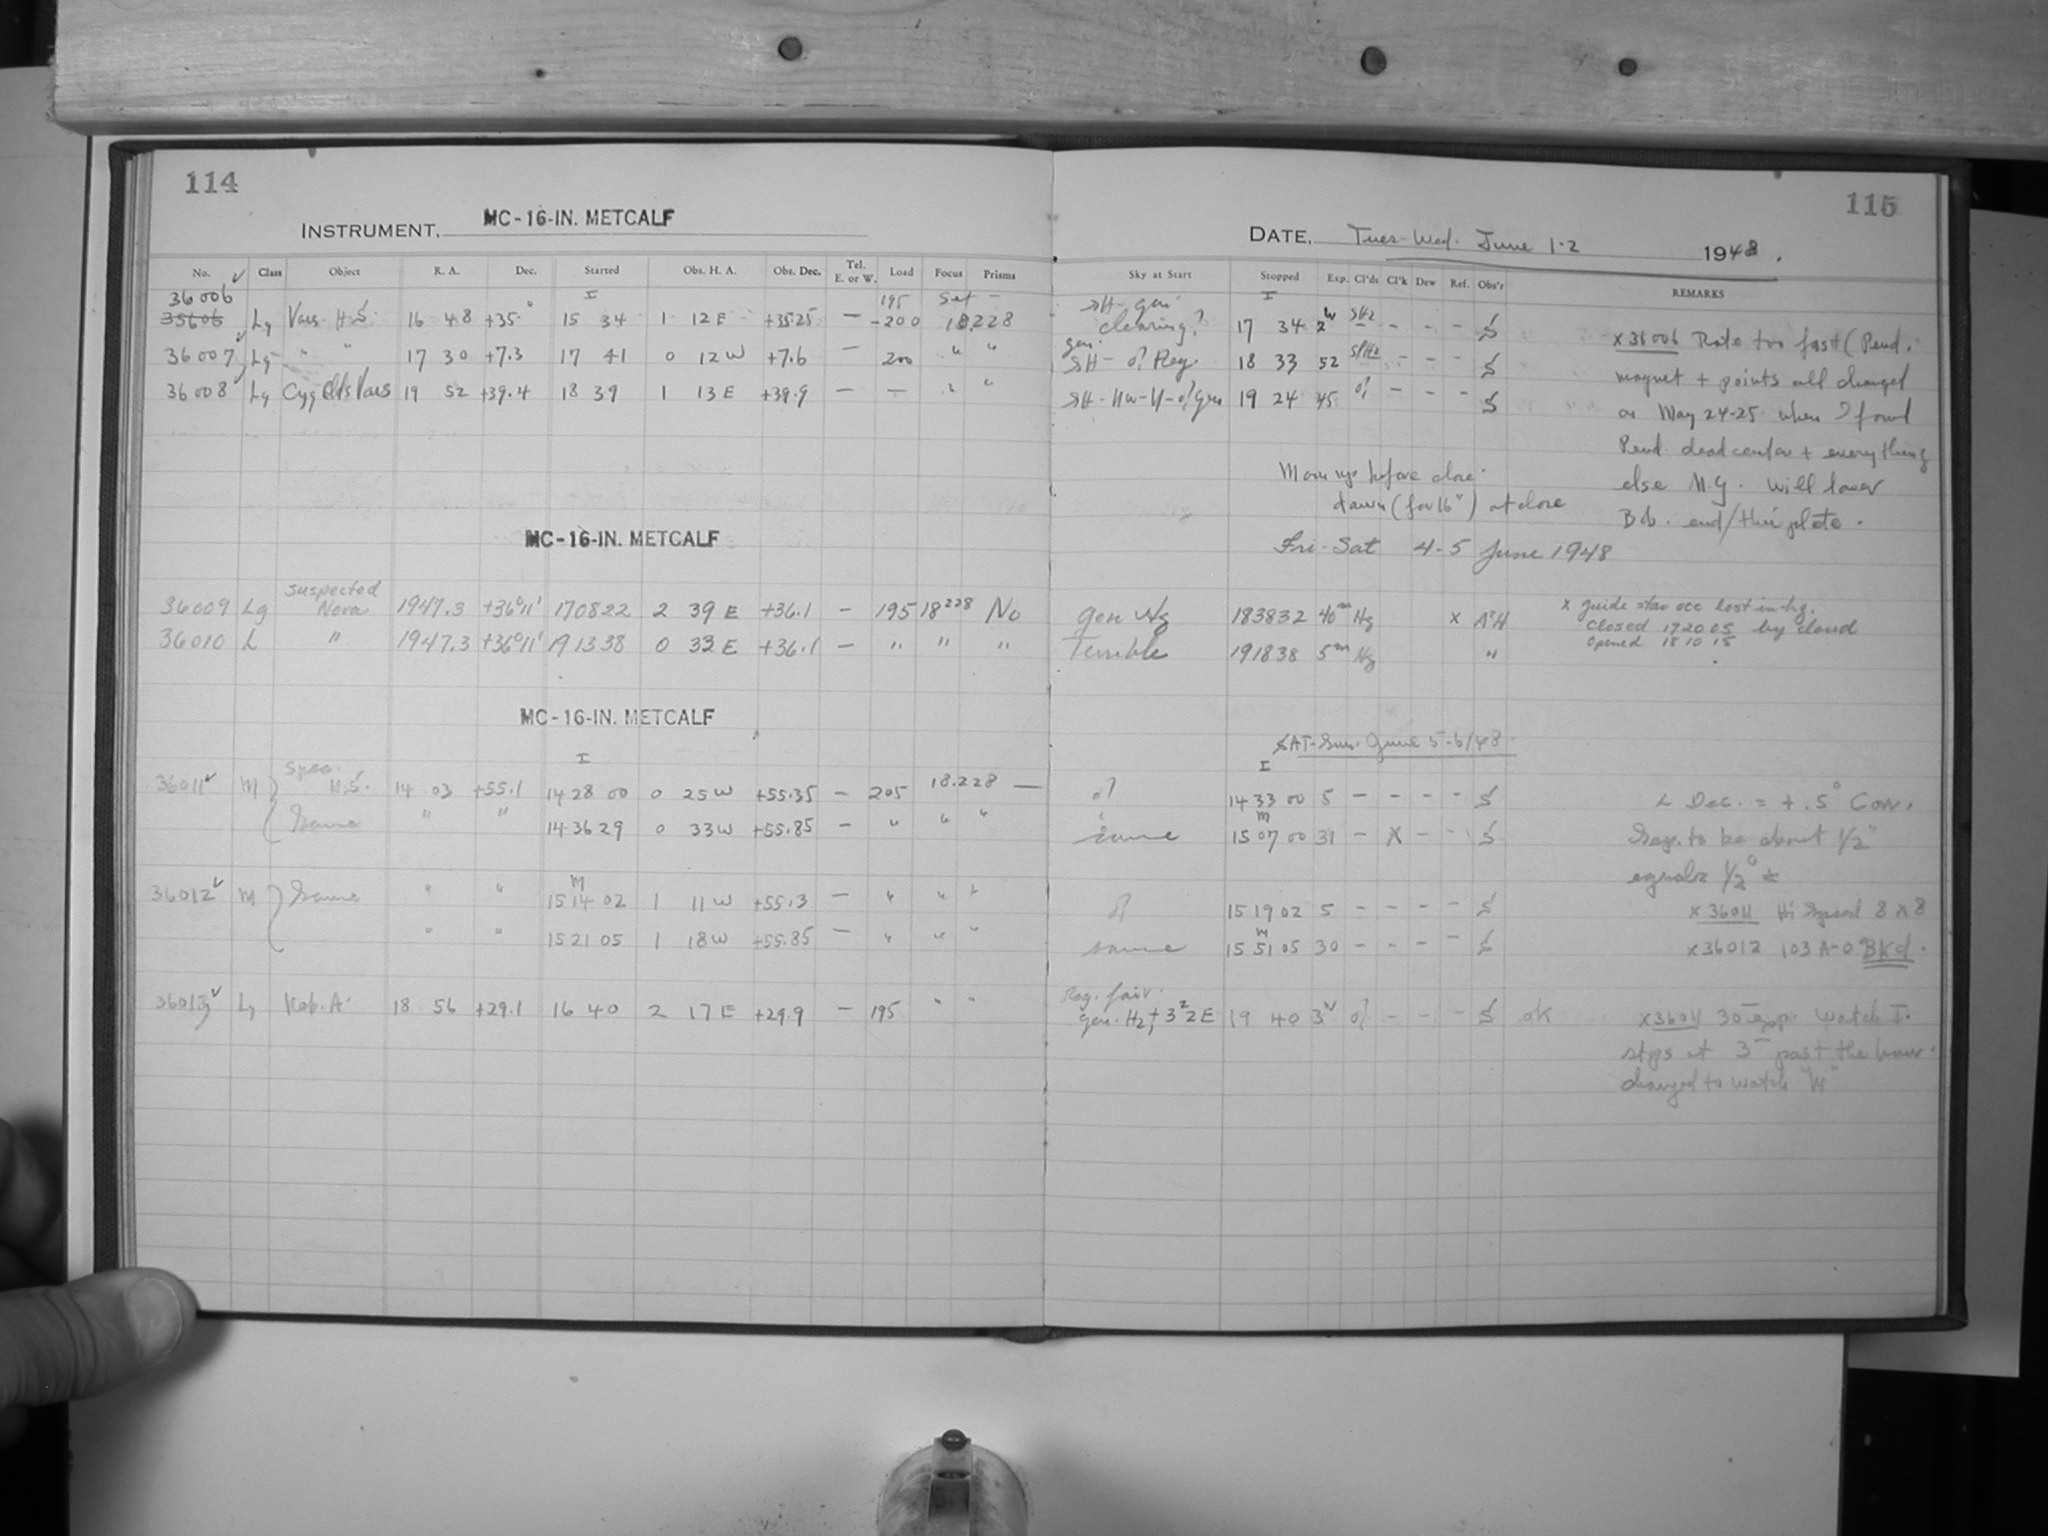 114
INSTRUMENT, MC-16-IN. METCALF
No. Class Object R. A. Dec. Started Obs. H. A. Obs. Dec. Tel. E. or W. Load Focus Prisms
36006 I 195 Set -
35606 Lg Vars. H.S. 16 48 +35.° 15 34 1 12 E +35.25 — -200 18.228
36007 Lg " " 17 30 +7.3 17 41 0 12 W +7.6 — 200 " "
36008 Lg Cyg Vars 19 52 +39.4 18 39 1 13 E +39.9 — — " "
MC-16-IN. METCALF
suspected
36009 Lg Nova 1947.3 +36°11' 170822 2 39 E +36.1 — 195 18228 No
36010 L " 1947.3 +36°11' 191338 0 33 E +36.1 — " " "
MC-16-IN. METCALF
Spec. I
36011 M H.S. 14 03 +55.1 14 28 00 0 25 W +55.35 — 205 18.228 —
Same " " 14 36 29 0 33 W +55.85 — " " "
M
36012 M Same " " 15 14 02 1 11 W +55.3 — " " "
" " 15 21 05 1 18 W +55.85 — " " "
36013 Lg Kap. A. 18 56 +29.1 16 40 2 17 E +29.9 — 195 " "
115
DATE, Tues-Wed. June 1-2 1948.
Sky at Start Stopped Exp. Cl'ds Cl'k Dew Ref. Obs'r REMARKS
SH- gen. I
clearing? 17 34 2 — — — — S x 36006 Rate too fast (Pend.
gen.
SH- Reg. 18 33 52 — — — S magnet + points all changed
SH- 19 24 45 — — — S on May 24-25 when I found
Pend. dead center + everything
Moon up before close. else N.G. Will lower
dawn (for 16") at close Bob. end/this plate.
Fri-Sat 4-5 June 1948
gen Hg 183832 40m Hg x x guide star occ lost in hg.
closed 172005 by cloud
opened 18 10 15
Terrible 191838 5m Hg "
SAT-Sun. June 5-6/48.
I
14 33 00 5 — — — — S Dec. = +.5° Corr.
M
same 15 07 00 31 — X — — S Seq. to be about 1/2"
equals 1/2°
15 19 02 5 — — — — S x 36011 Hi Speed 8 x 8
M
same 15 51 05 30 — — — — S x 36012 103 A-O BKd.
fair.
gen. H2 + 3 2 E 19 40 3 — — — S OK x 36011 30 exp. Watch I.
stops at 3 past the hour.
changed to watch "M"